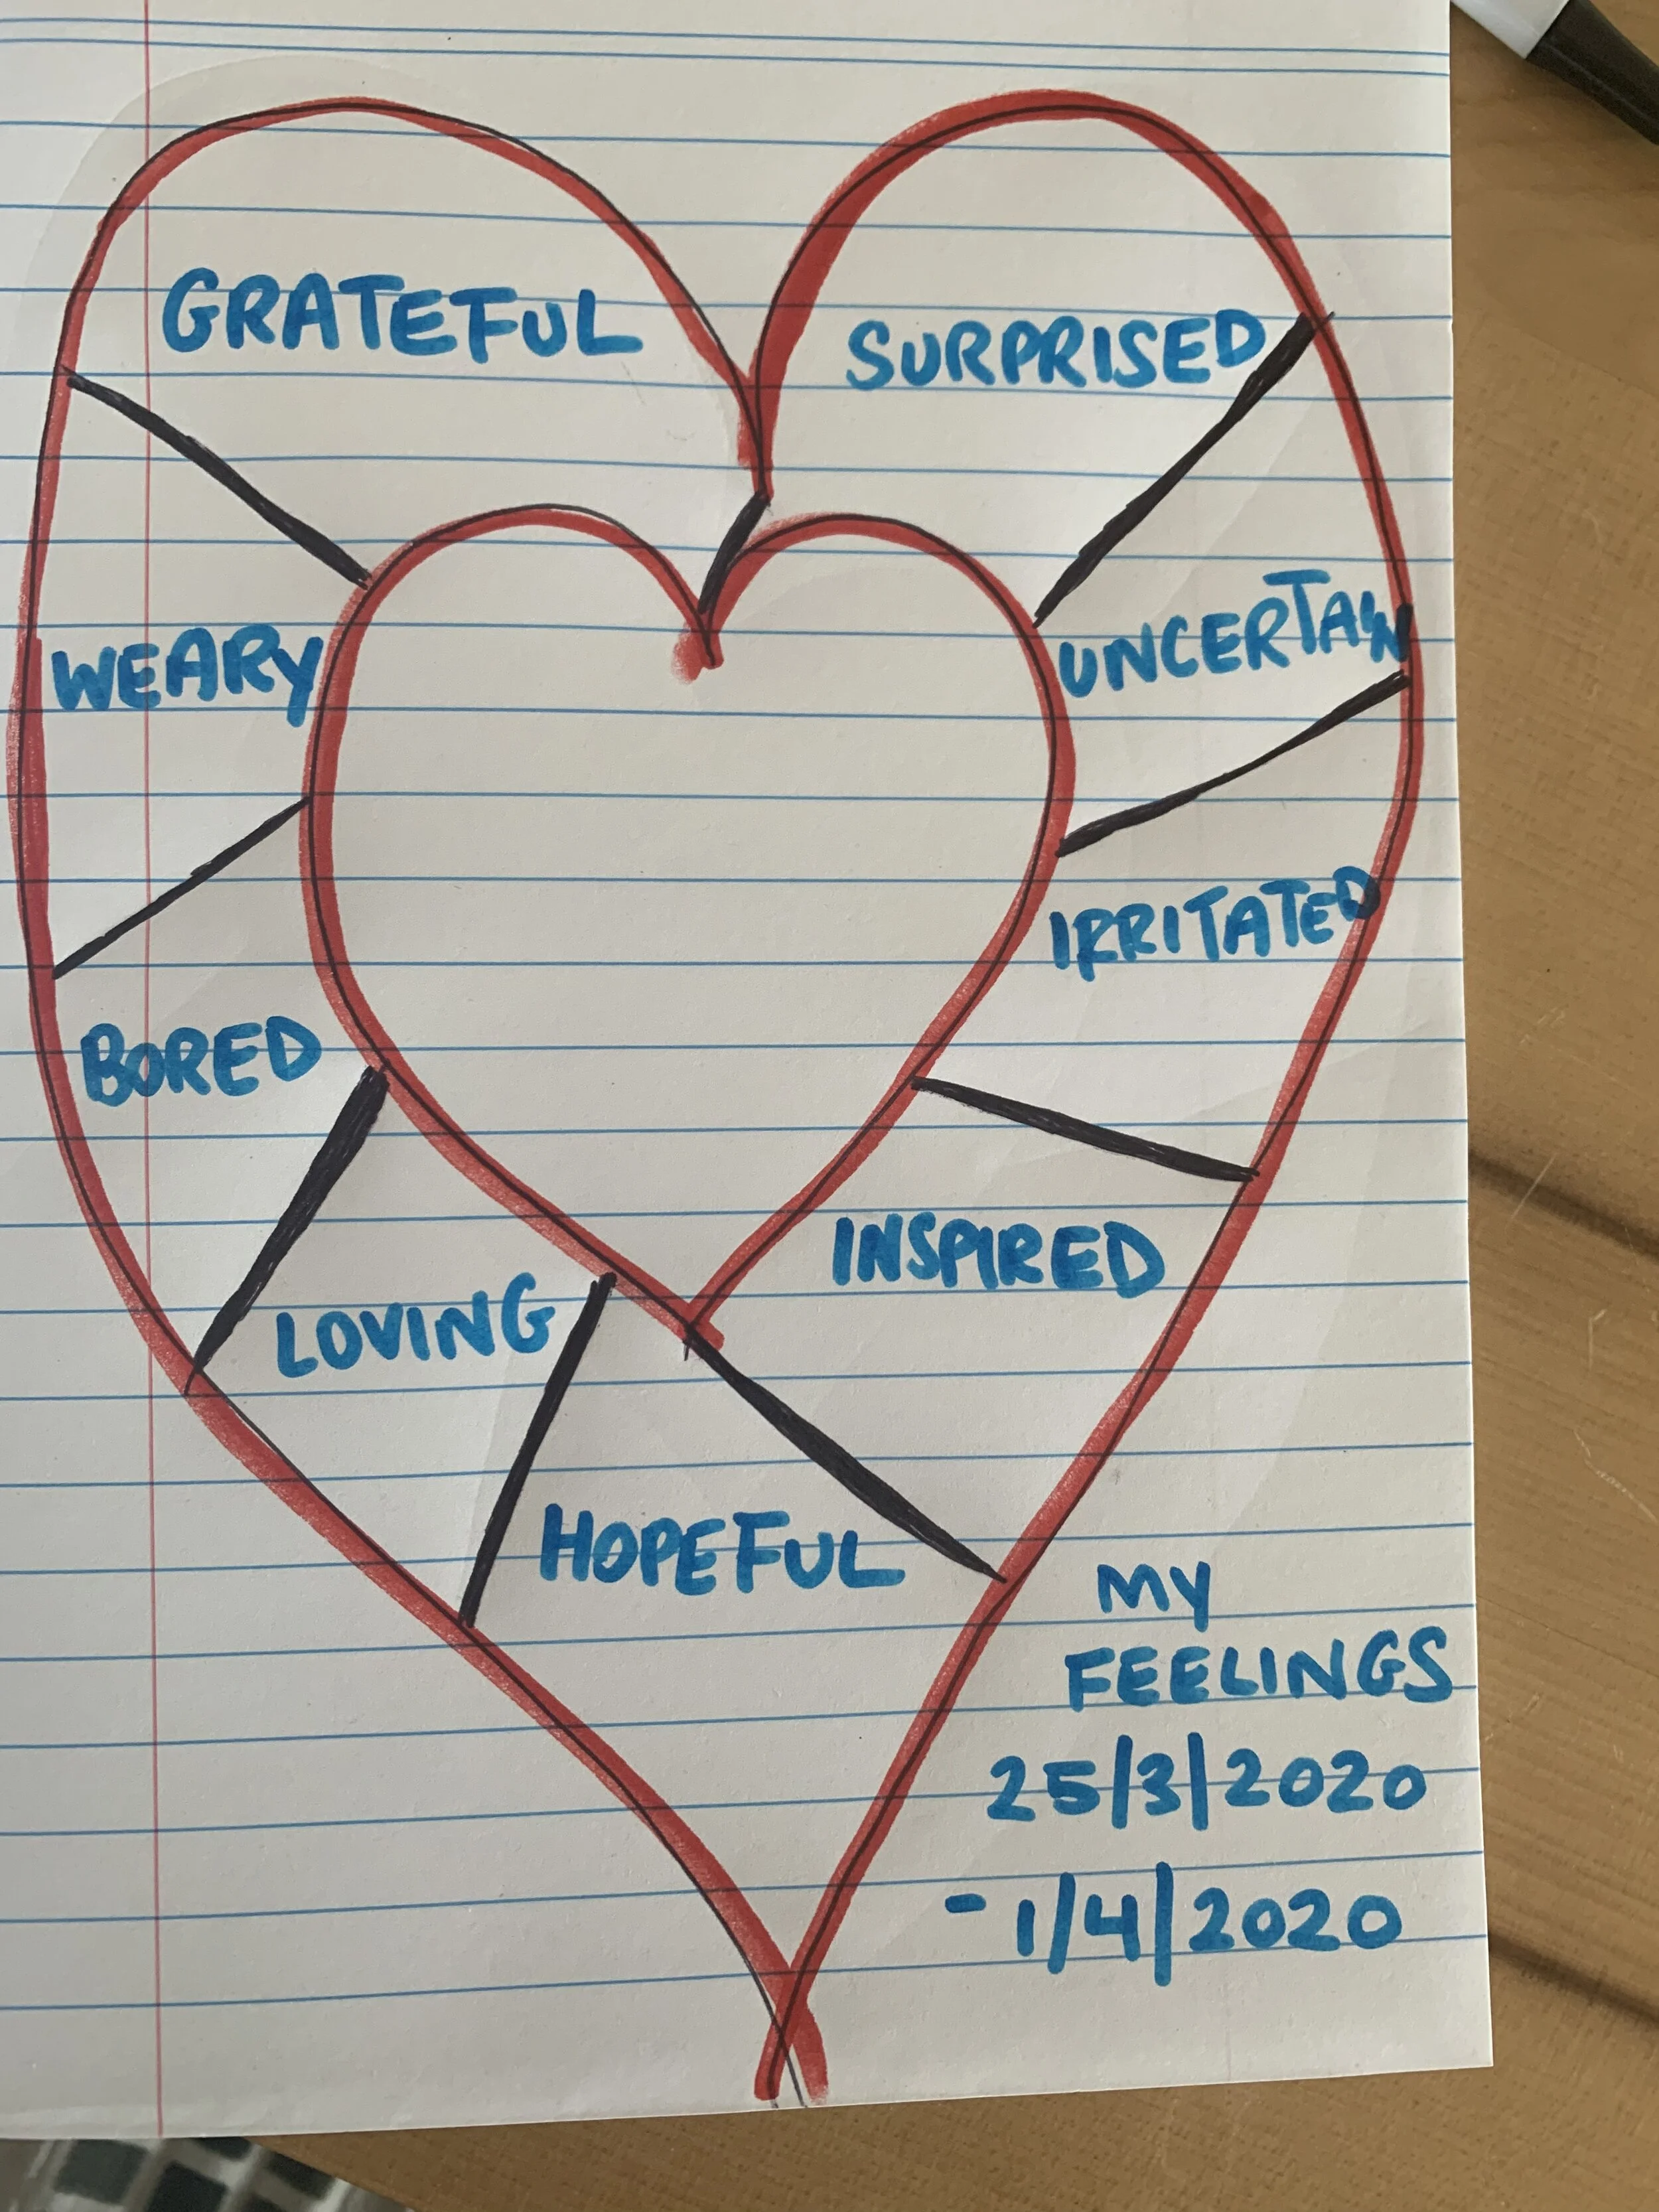 GRATEFUL
SURPRISED
WEARY
UNCERTAIN
IRRITATED
BORED
INSPIRED
LOVING
HOPEFUL
MY
FEELINGS
25/3/2020
- 1/4/2020